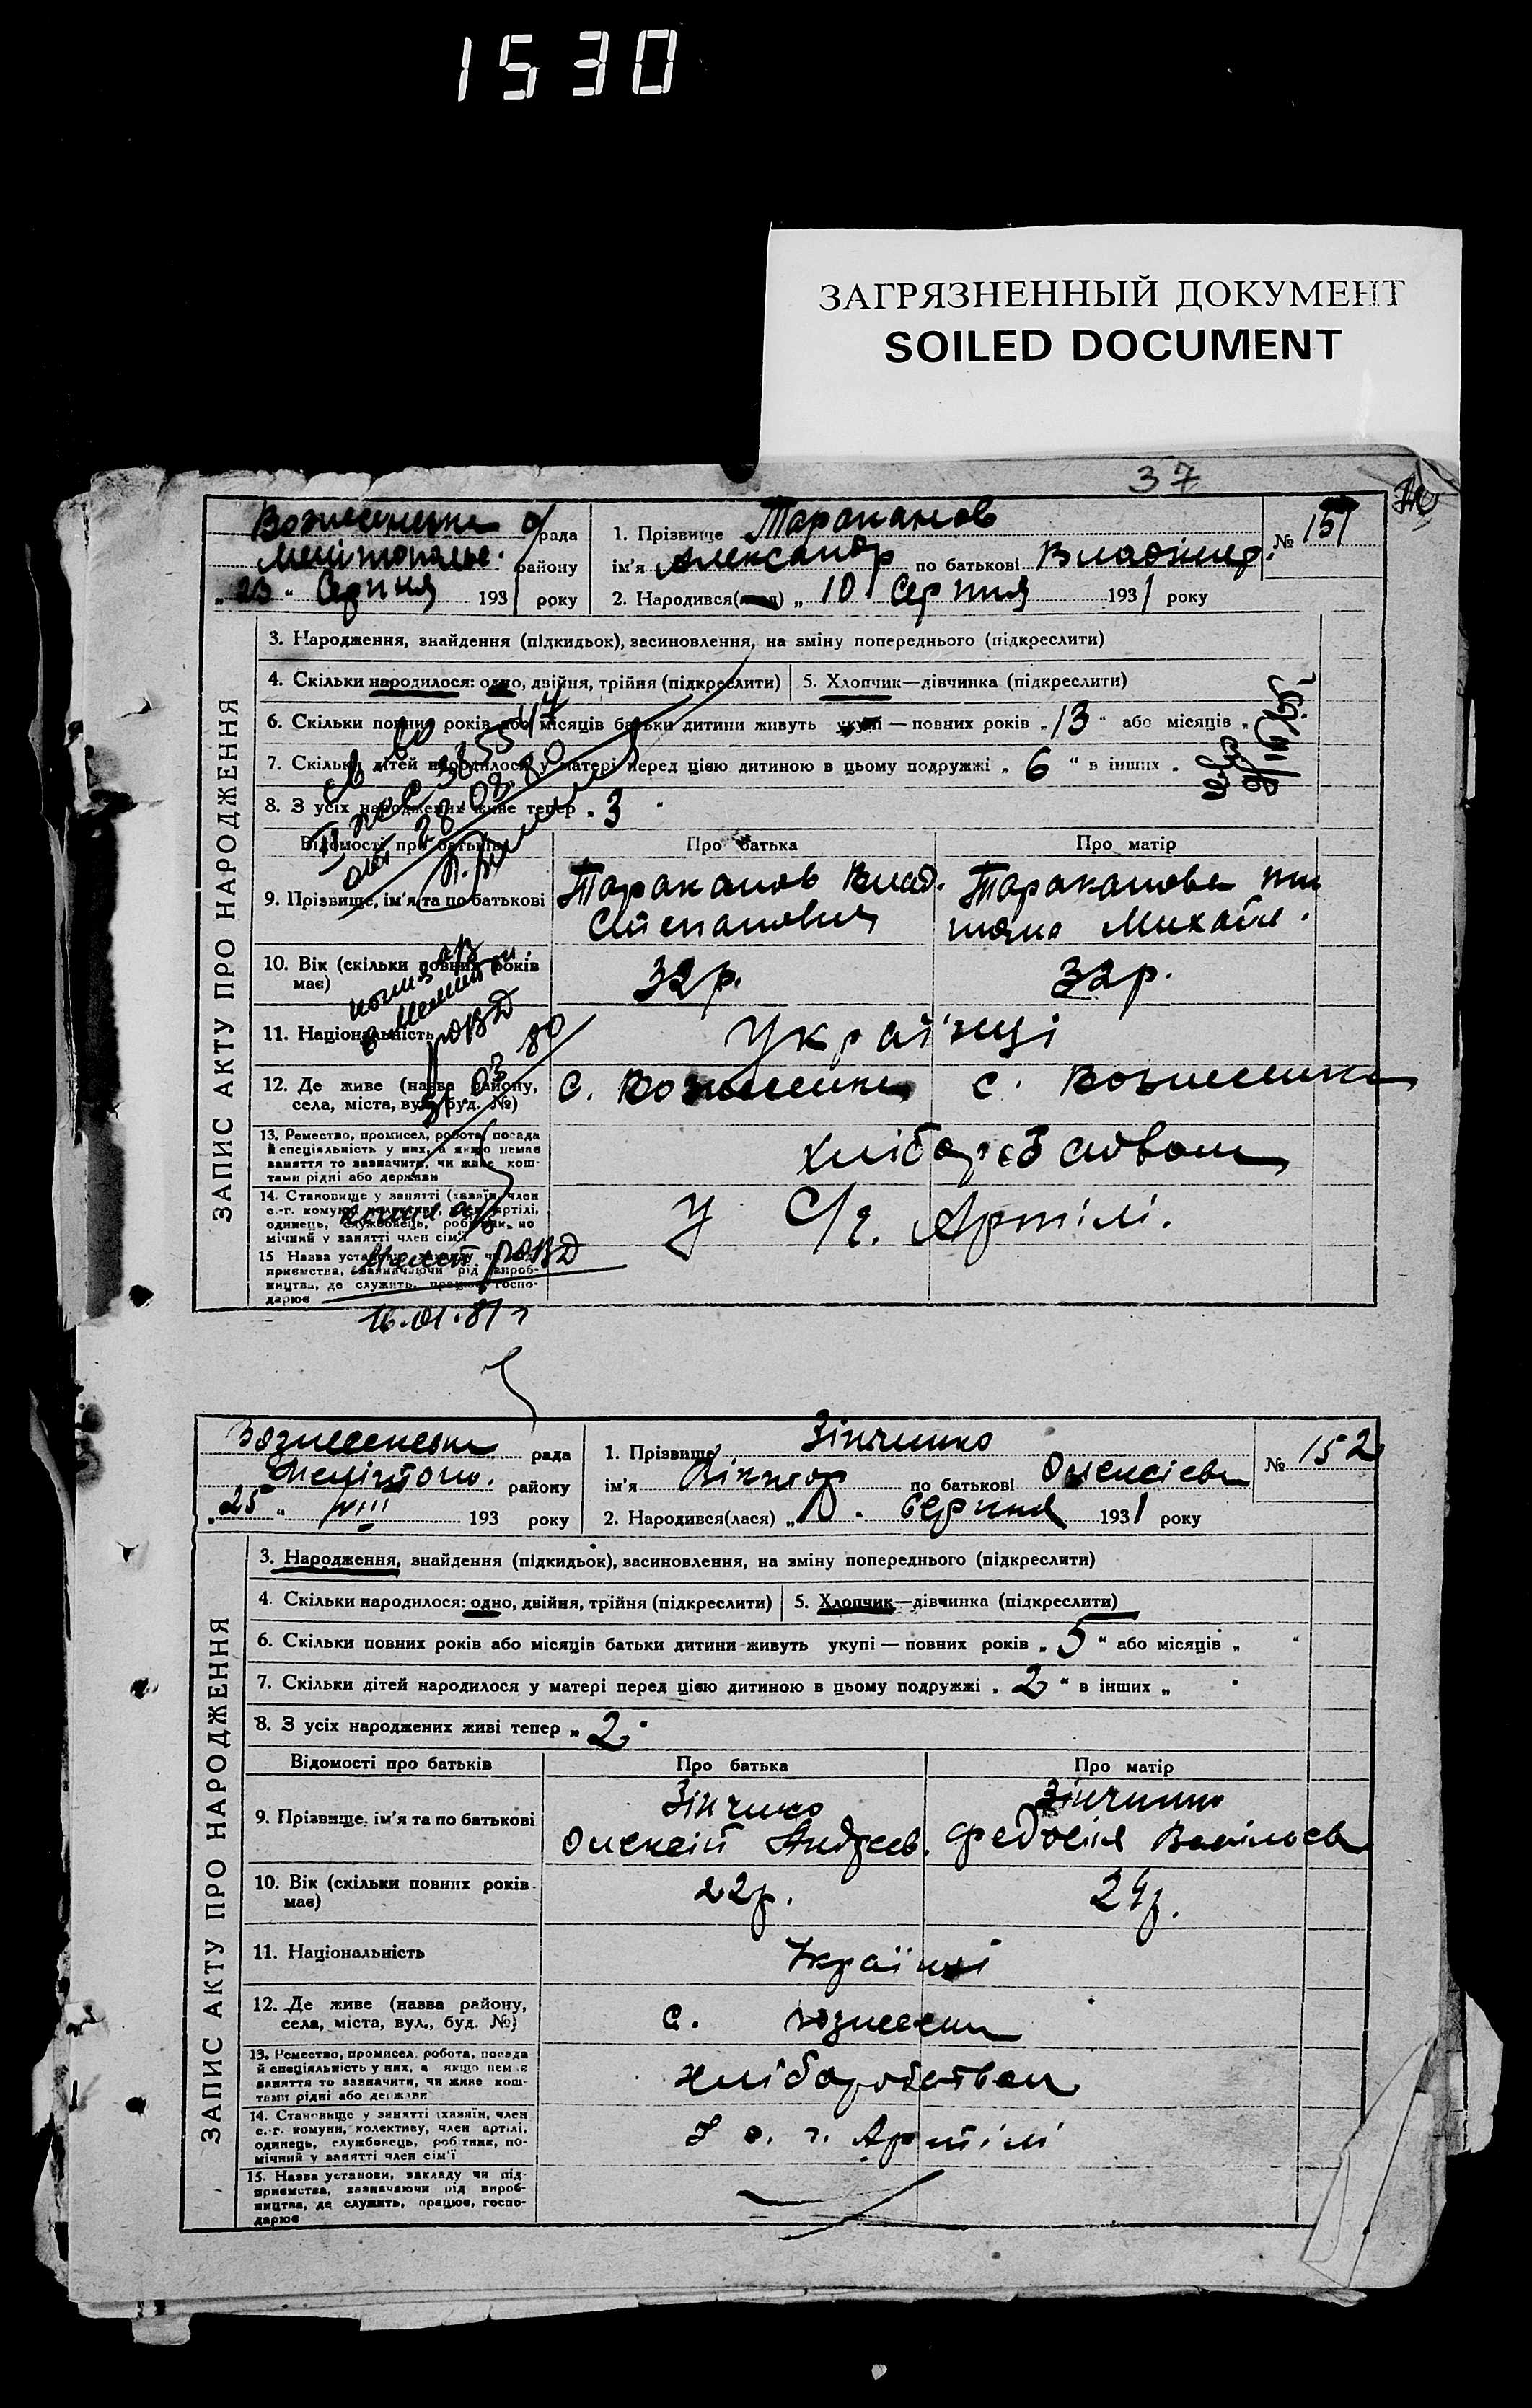 1530
ЗАГРЯЗНЕННЫЙ ДОКУМЕНТ
SOILED DOCUMENT
37
ЗАПИС АКТУ ПРО НАРОДЖЕННЯ
Вознесенська с/рада
Мелітопольс. району
„23“ Серпня 1931 року
1. Прізвище Тараканов
№ 151
ім'я Александр по батькові Владімир.
2. Народився(лася) „10 Серпня 1931 року
3. Народження, знайдення (підкидьок), засиновлення, на зміну попереднього (підкреслити)
4. Скільки народилося: одно, двійня, трійня (підкреслити)
5. Хлопчик—дівчинка (підкреслити)
6. Скільки повних років або місяців батьки дитини живуть укупі — повних років „13“ або місяців „
7. Скільки дітей народилося у матері перед цією дитиною в цьому подружжі „6“ в інших
8. З усіх народжених живе тепер „3“
Відомості про батьків
Про батька
Про матір
9. Прізвище, ім'я та по батькові
Тараканов Влад.
Степанович
Тараканова Тит
яна Михайл.
10. Вік (скільки повних років має)
32 р.
32 р.
11. Національність
Українці
12. Де живе (назва району, села, міста, вул., буд. №)
с. Вознесенка
с. Вознесенка
13. Ремество, промисел, робота, посада й спеціяльність у них, а якщо немає заняття то зазначити, чи живе коштами рідні або держави
хліборобством
14. Становище у занятті (хазяїн, член с.-г. комуни, колективу, член артілі, одинець, службовець, робітник, помічний у занятті член сім'ї
У С/г. Артілі.
15 Назва установи, закладу чи підприємства, зазначаючи рід виробництва, де служить, працює, господарює
28.03.80
РОВД
03 80
РОВД
16.01.81 г
ЗАПИС АКТУ ПРО НАРОДЖЕННЯ
Вознесенська рада
Мелітопо. району
„25“ VIII 193 року
1. Прізвище Зінченко
№ 152
ім'я Віктор по батькові Олексієв
2. Народився(лася) „ Серпня 1931 року
3. Народження, знайдення (підкидьок), засиновлення, на зміну попереднього (підкреслити)
4. Скільки народилося: одно, двійня, трійня (підкреслити)
5. Хлопчик—дівчинка (підкреслити)
6. Скільки повних років або місяців батьки дитини живуть укупі — повних років „5“ або місяців „ “
7. Скільки дітей народилося у матері перед цією дитиною в цьому подружжі „2“ в інших „
8. З усіх народжених живі тепер „2“
Відомості про батьків
Про батька
Про матір
9. Прізвище, ім'я та по батькові
Зінченко
Олексій Андрєєв.
Зінченко
Федосія Васільєв
10. Вік (скільки повних років має)
22р.
24р.
11. Національність
Українці
12. Де живе (назва району, села, міста, вул., буд. №)
с. Вознесенки
13. Ремество, промисел, робота, посада й спеціяльність у них, а якщо немає заняття то зазначити, чи живе коштами рідні або держави
хліборобством
14. Становище у занятті (хазяїн, член с.-г. комуни, колективу, член артілі, одинець, службовець, робітник, помічний у занятті член сім'ї
У с. г. Артілі
15. Назва установи, закладу чи підприємства, зазначаючи рід виробництва, де служить, працює, господарює